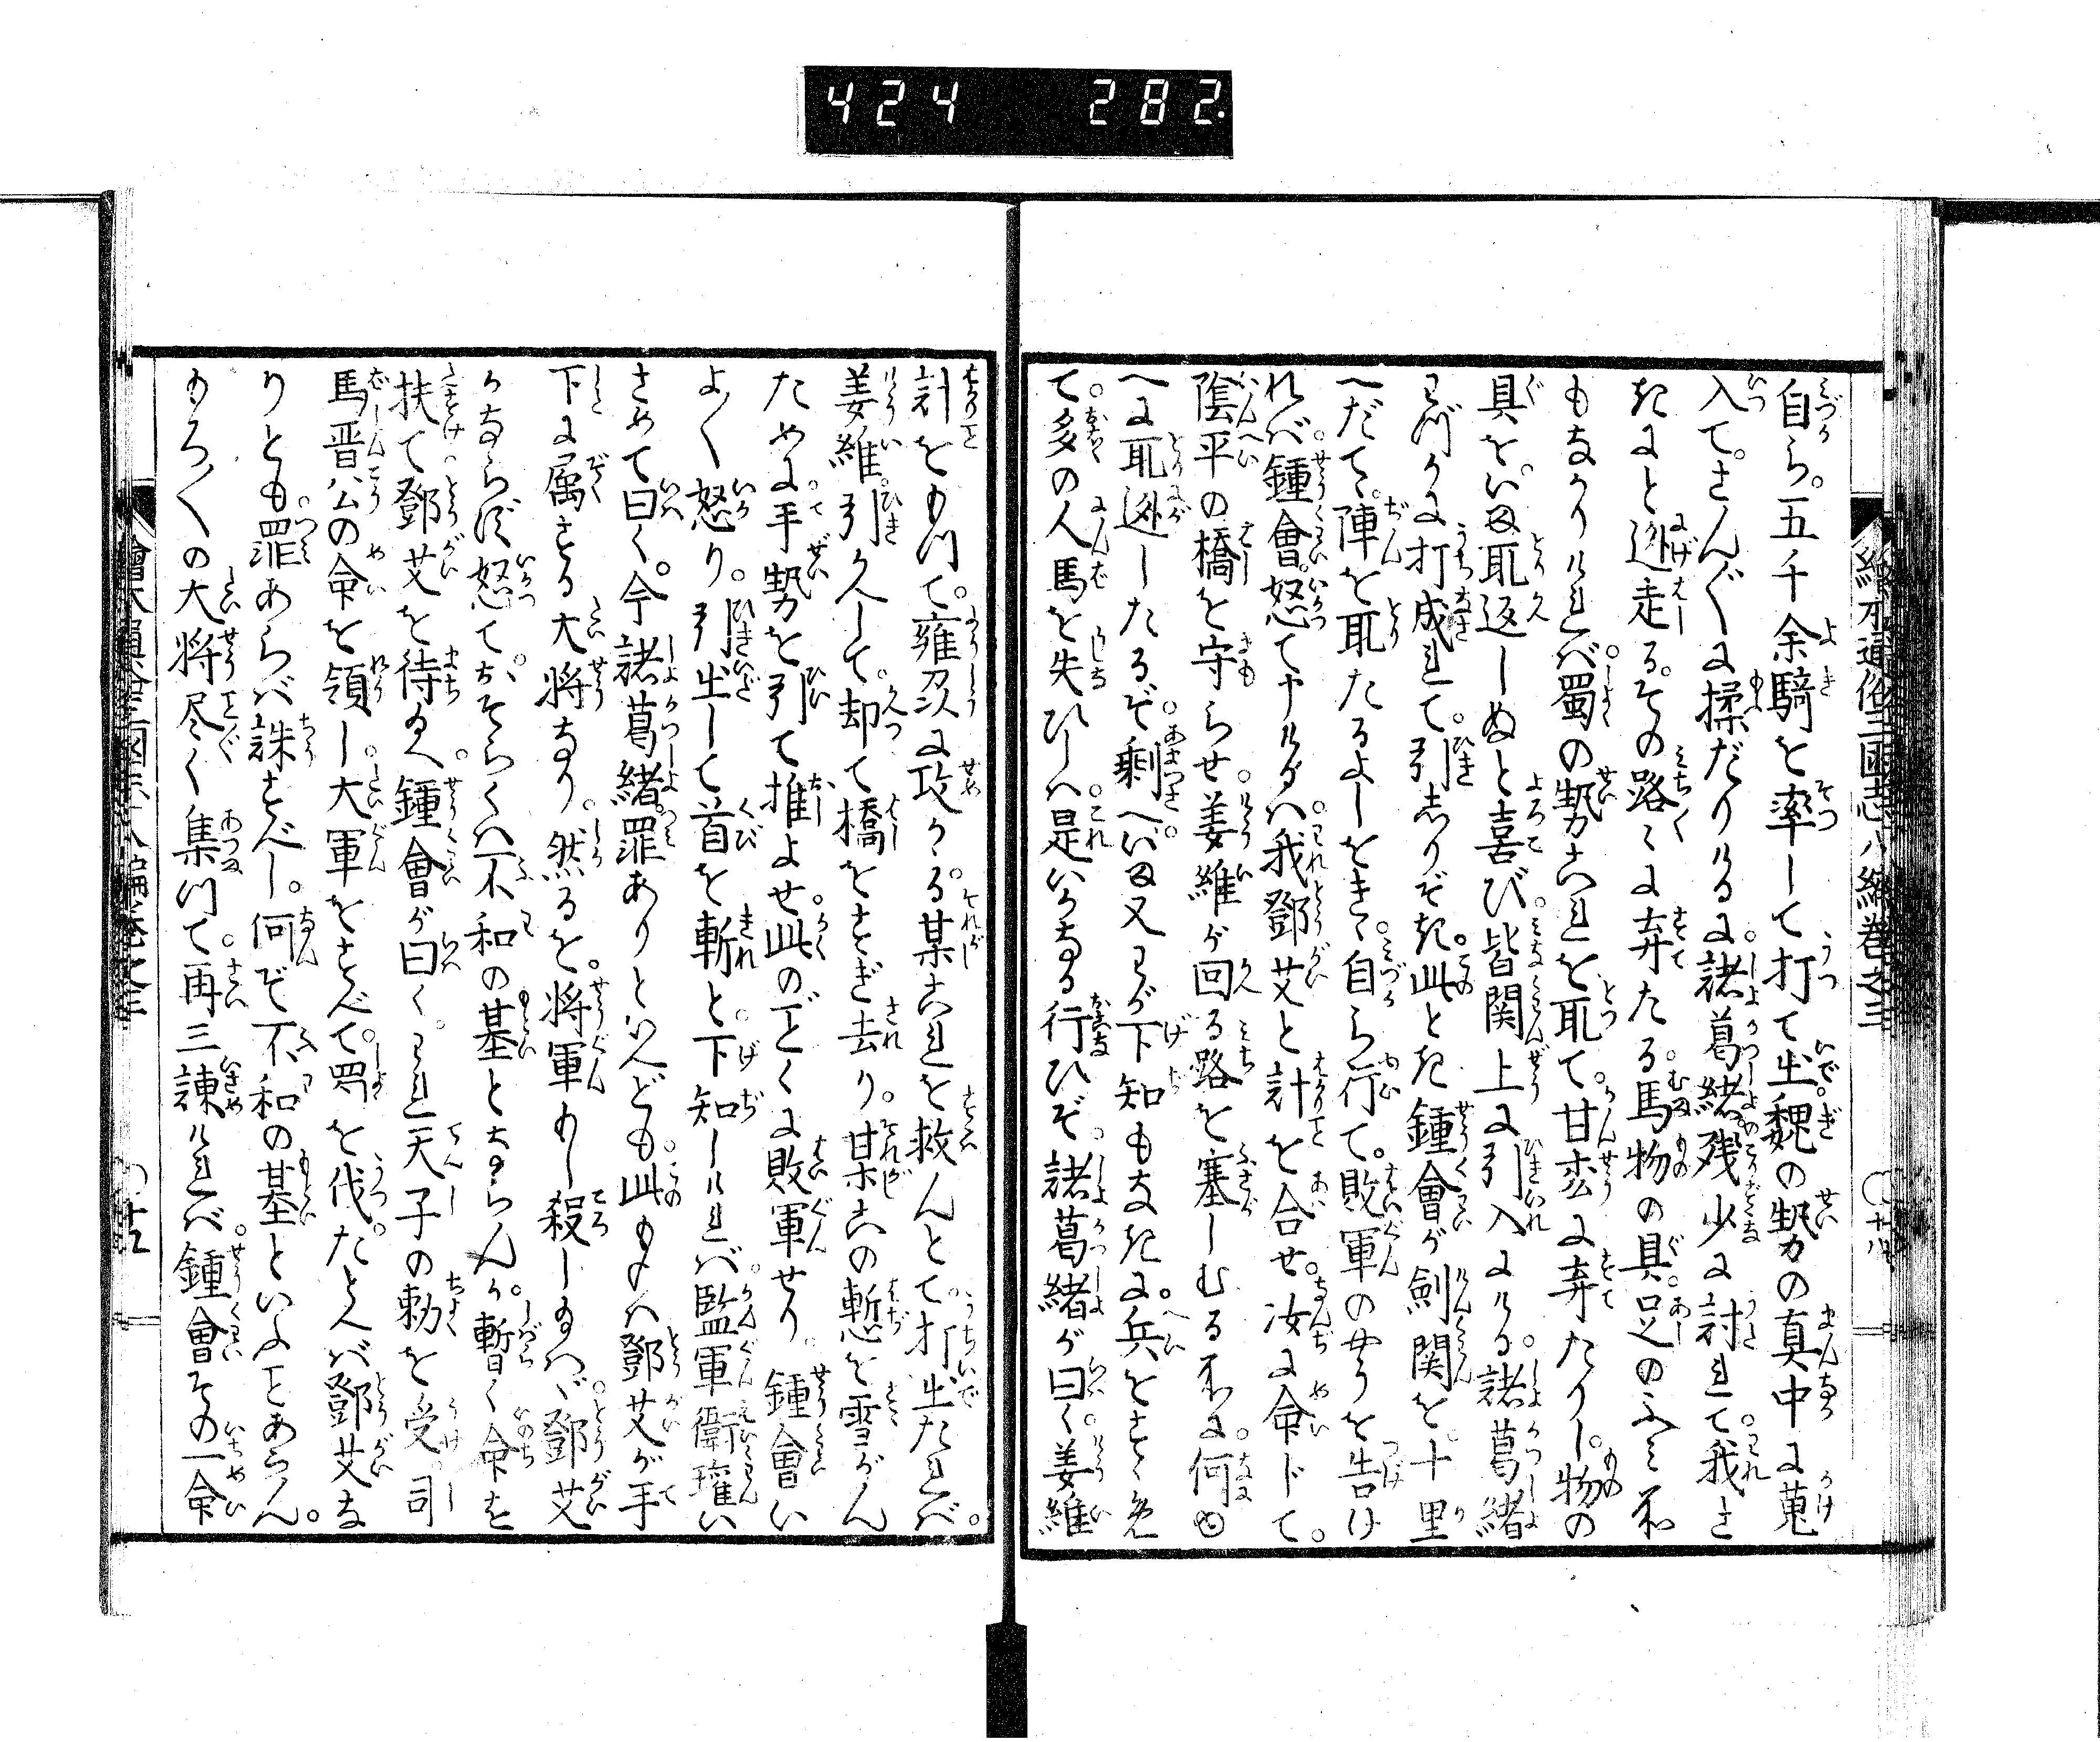 424 282
自ら。五千余騎を率して打て出。魏の勢の真中に蒐
入て。さん〴〵に揉だりける に。諸葛緒残少に討れて。我さ
きにと迯走る。その路々に弃たる。馬物の具。足のふみ所
もなかりければ。蜀の勢これを取て。甘松に弃たりし。物の
具を。いま取返しぬと喜び。皆関上に引入にける。諸葛緒
わづかに打成れて。引しりぞき。此とき鍾會が剣関を。十里
へだて。陣を取たるよしをきゝ。自ら行て。敗軍のやうを告け
れバ。鍾會。怒て申けるハ。我鄧艾と計を合せ。汝に命じて。
陰平の橋を守らせ。姜維が回る路を塞しむる所に。何ゆ
へに取迯したるぞ。剰へいま又わが下知もなきに。兵をすゝめ
て。多の人馬を失ひしハ。是いかなる行ひぞ。諸葛緒が曰く。姜維
計をめぐらして。雍州に攻かゝる。某これを救んとて。打出たれバ。
姜維。引かへして。却て橋をすぎ去り。某この慙を雪がん
ために。手勢を引て推よせ。此のごとくに敗軍せり。鍾會い
よ〳〵怒り。引出して首を斬と。下知しけれバ。監軍衛瓘い
さめて曰く。今諸葛緒。罪ありといへども。此ものハ鄧艾が手
下に属する大将なり。然るを。将軍もし殺し玉ハヾ。鄧艾
かならず怒て。おそらくハ不和の基とならんか。暫く命を
扶て。鄧艾を待玉へ。鍾會が曰く。われ天子の勅を受。司
馬晋公の命を領し。大軍をすべて。蜀を伐。たとへバ鄧艾な
りとも。罪あらバ誅すべし。何ぞ不和の基といふことあらん。
もろ〳〵の大将尽く集りて。再三諫けれバ。鍾會その一命